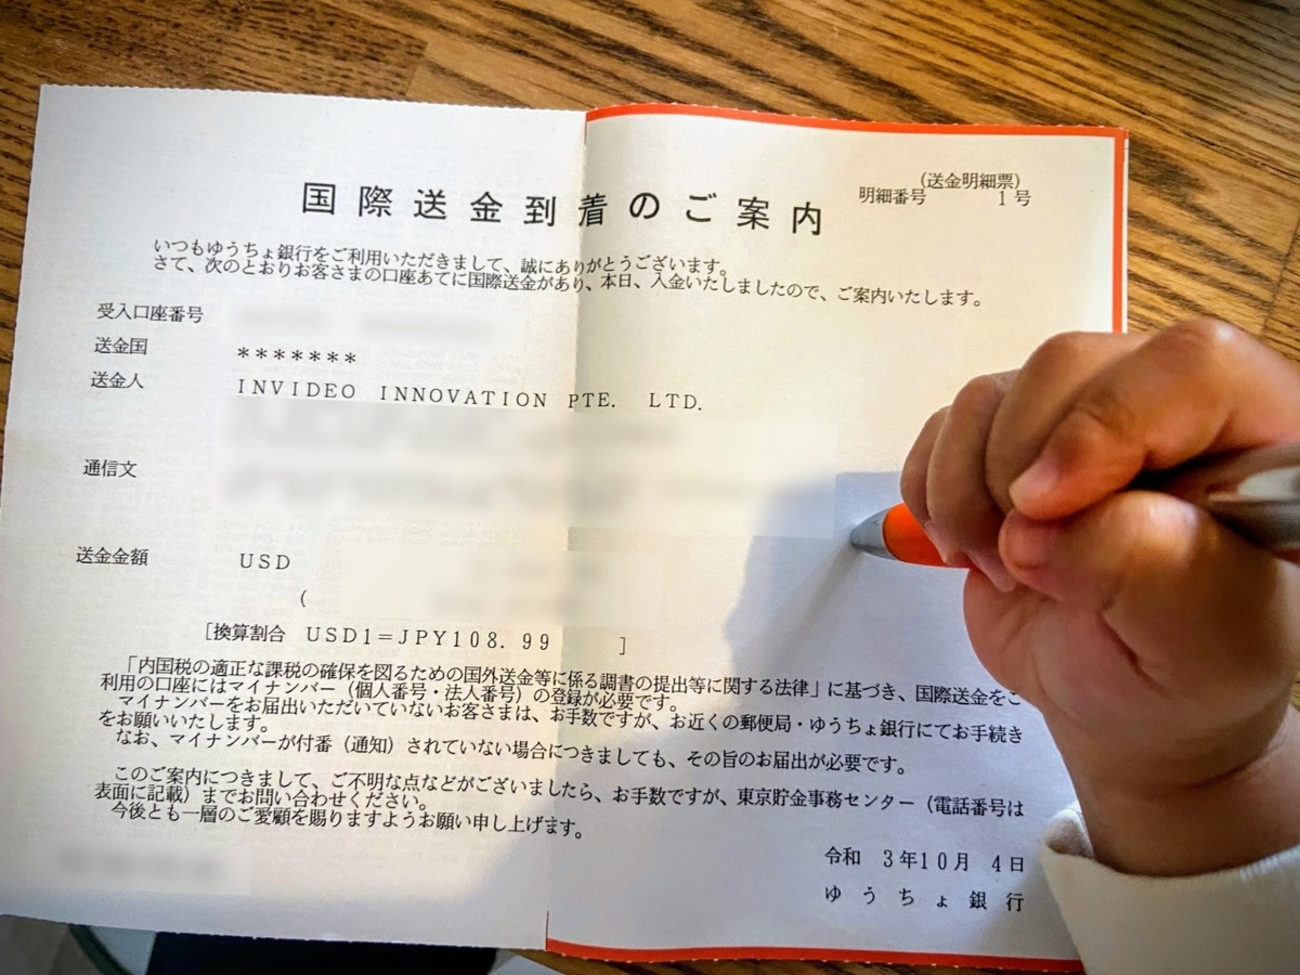 国際送金到着のご案内
(送金明細票)
明細番号 1号
いつもゆうちょ銀行をご利用いただきまして、誠にありがとうございます。
さて、次のとおりお客さまの口座あてに国際送金があり、本日、入金いたしましたので、ご案内いたします。
受入口座番号
送金国 *******
送金人 INVIDEO INNOVATION PTE. LTD.
通信文
送金金額 USD
(
[換算割合 USD1=JPY108.99 ]
「内国税の適正な課税の確保を図るための国外送金等に係る調書の提出等に関する法律」に基づき、国際送金をご
利用の口座にはマイナンバー(個人番号・法人番号)の登録が必要です。
マイナンバーをお届出いただいていないお客さまは、お手数ですが、お近くの郵便局・ゆうちょ銀行にてお手続き
をお願いいたします。
なお、マイナンバーが付番(通知)されていない場合につきましても、その旨のお届出が必要です。
このご案内につきまして、ご不明な点などがございましたら、お手数ですが、東京貯金事務センター(電話番号は
表面に記載)までお問い合わせください。
今後とも一層のご愛顧を賜りますようお願い申し上げます。
令和 3年10月 4日
ゆうちょ銀行